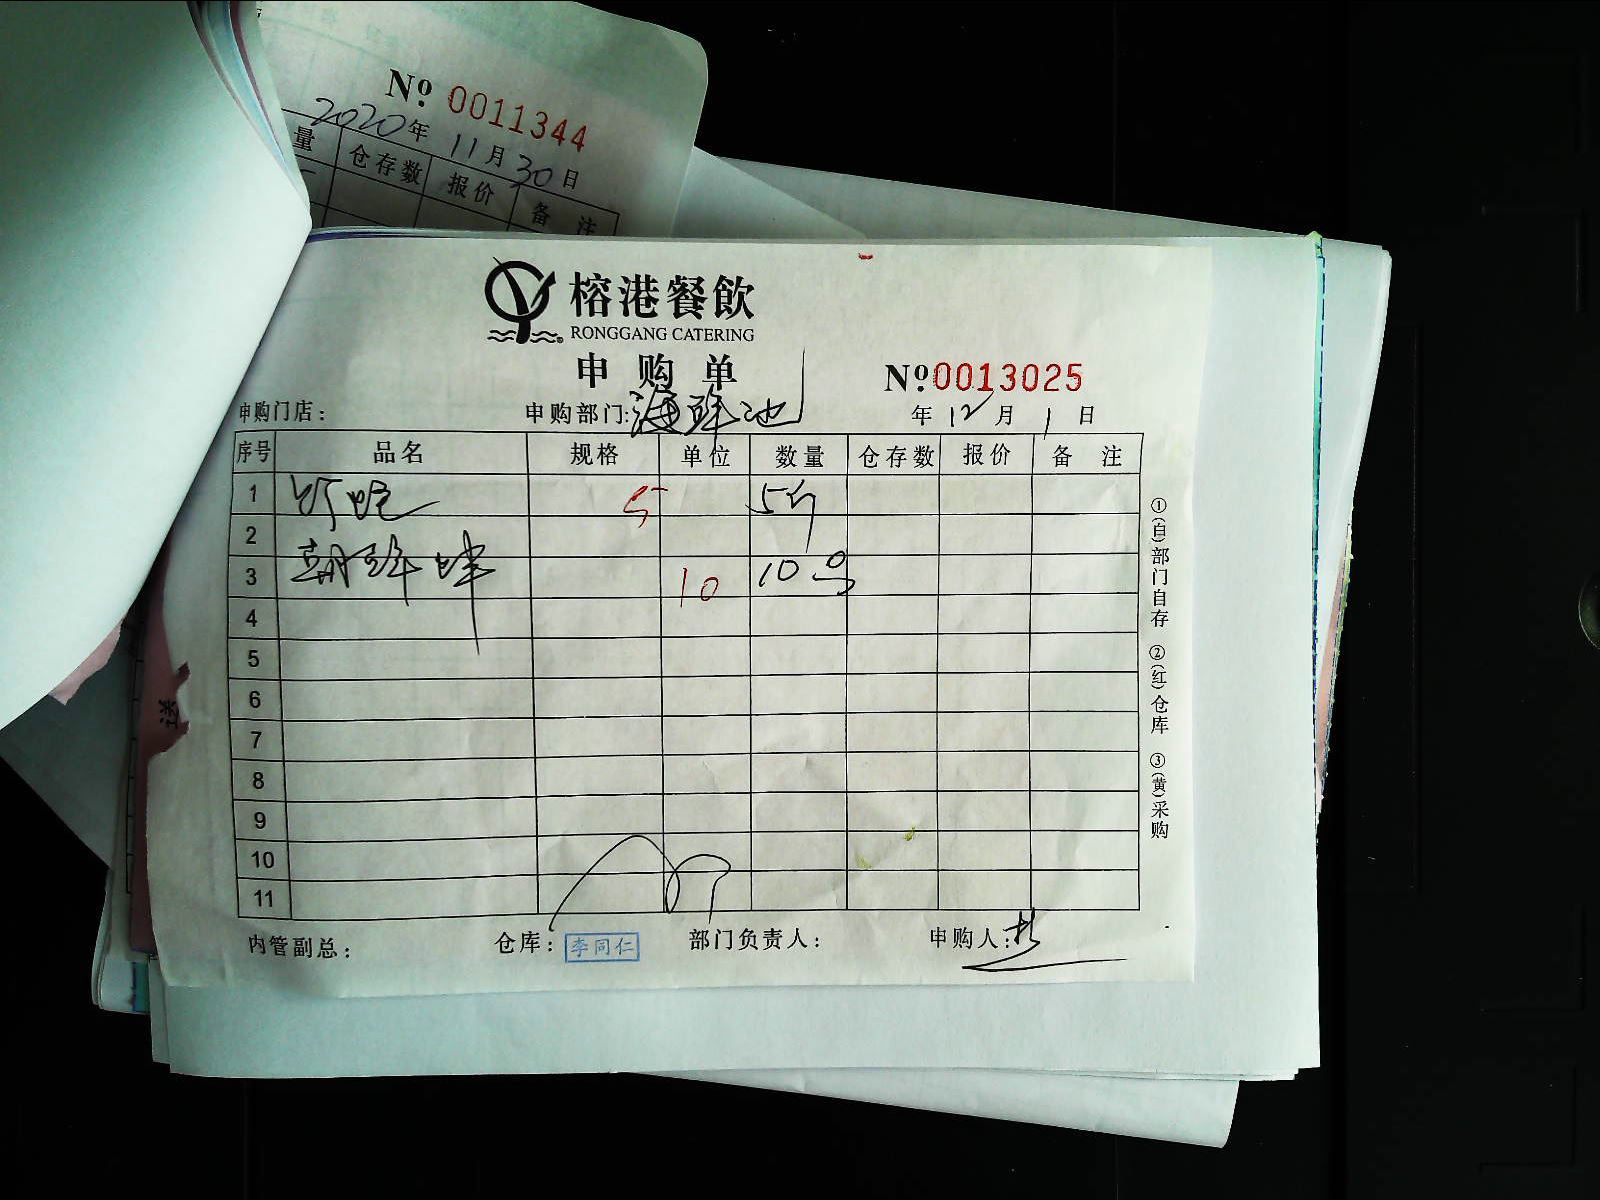 № 0011344
2020年 11月 30日
量 仓存数 报价 备 注
榕港餐飲
RONGGANG CATERING
申购单
№ 0013025
申购门店： 申购部门：海鲜池 年 12 月 1 日
序号 品名 规格 单位 数量 仓存数 报价 备 注
1 5 5斤
2
3 10 10只
4
5
6
7
8
9
10
11
内管副总： 仓库：李同仁 部门负责人： 申购人：
①(白)部门自存 ②(红)仓库 ③(黄)采购
送